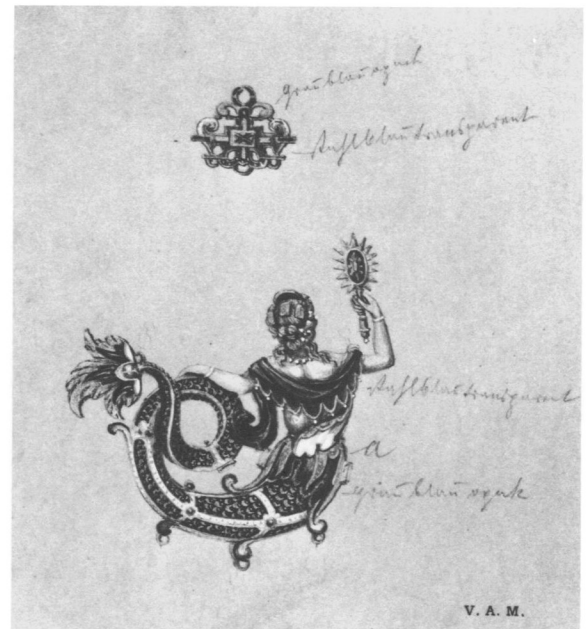 graublau opak
stahlblau transparent
stahlblau transparent
a
graublau opak
V. A. M.